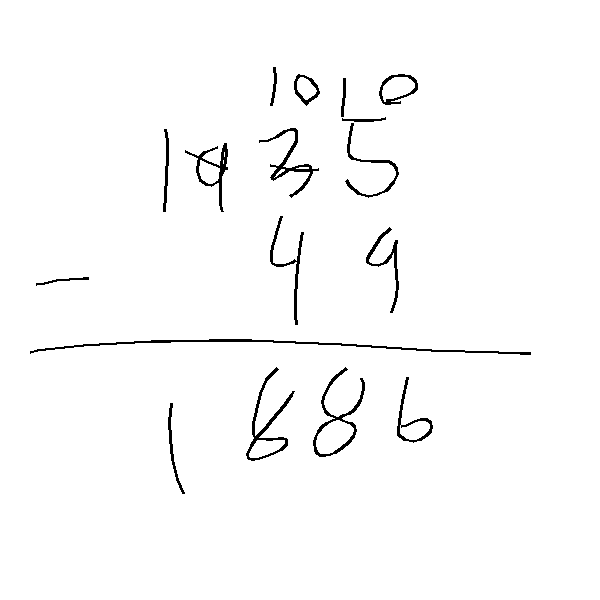 10 10
1935
- 49
1886